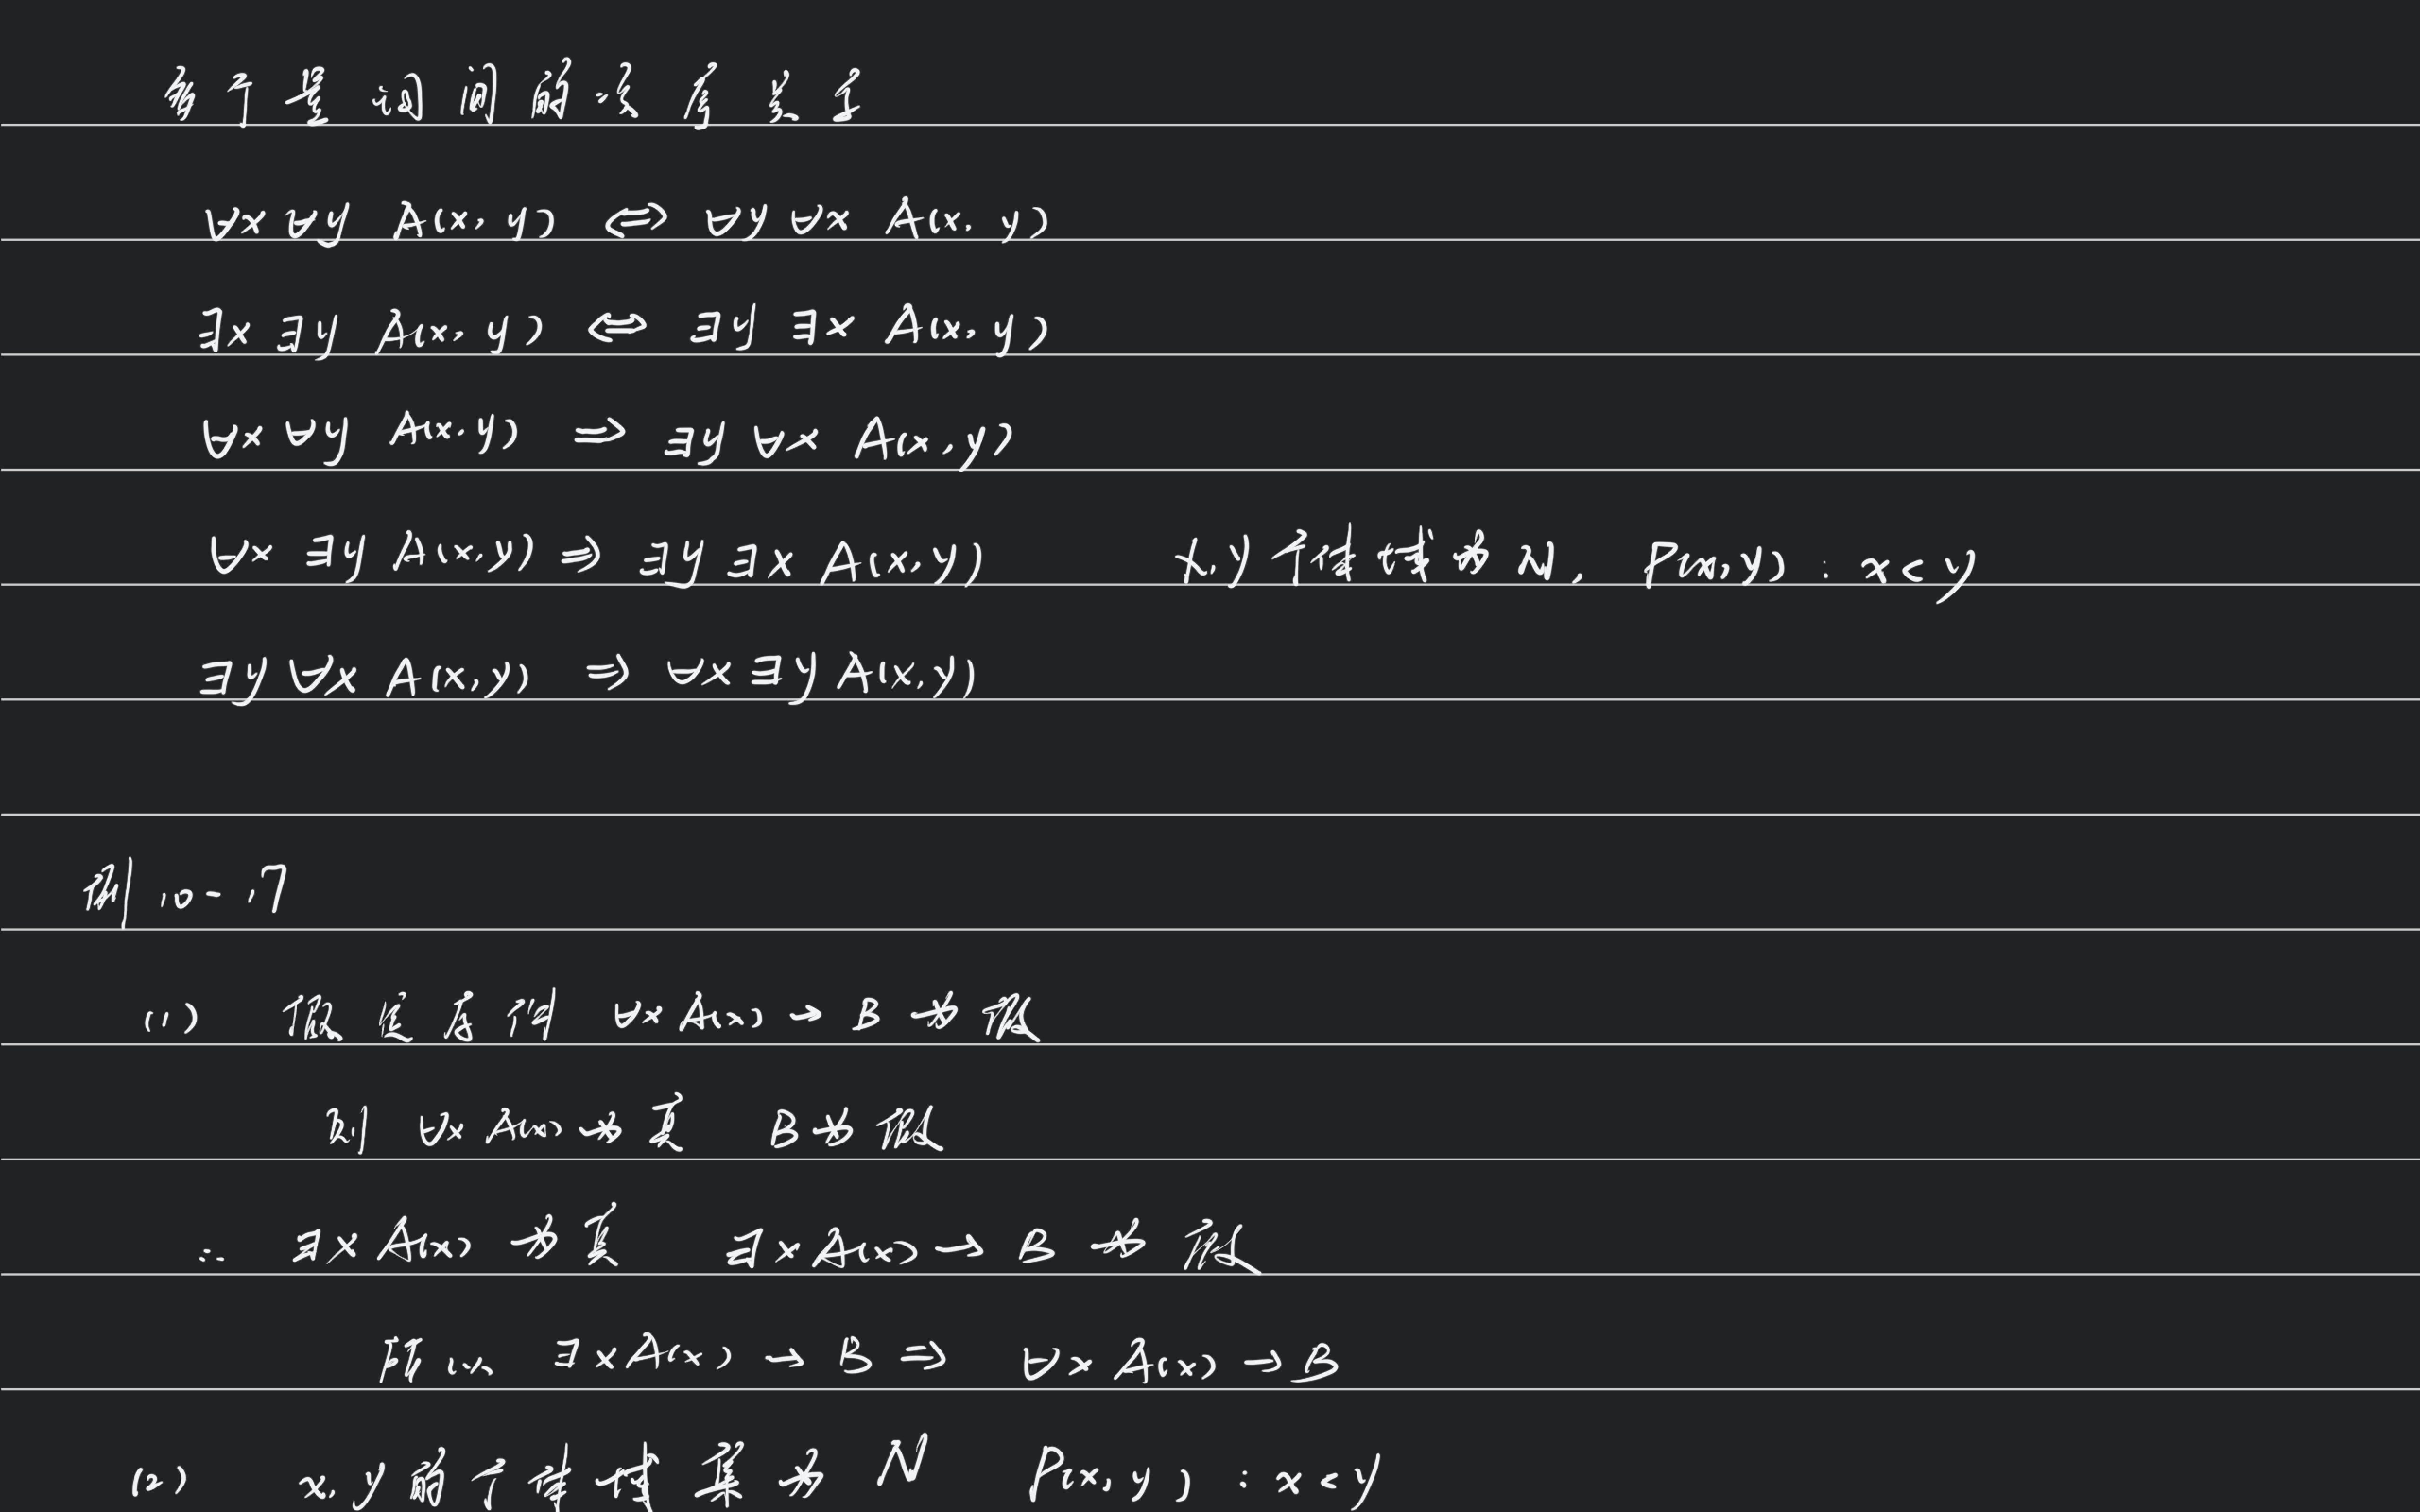 多个量词间的次序关系
∀x ∀y A(x, y) ⇔ ∀y ∀x A(x, y)
∃x ∃y A(x, y) ⇔ ∃y ∃x A(x, y)
∀x ∀y A(x, y) ⇒ ∃y ∀x A(x, y)
∀x ∃y A(x, y) ⇒ ∃y ∃x A(x, y) x, y 个体域为 N, P(x, y) : x < y
∃y ∀x A(x, y) ⇒ ∀x ∃y A(x, y)
例 10-17
(1) 假定后件 ∀x A(x) → B 为假
则 ∀x A(x) 为真 B 为假
∴ ∃x A(x) 为真 ∃x A(x) → B 为假
所以 ∃x A(x) → B ⇒ ∀x A(x) → B
(2) x, y 的个体域集为 N P(x, y) : x < y